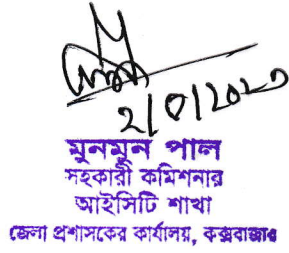 মুনমুন পাল
সহকারী কমিশনার
আইসিটি শাখা
জেলা প্রশাসকের কার্যালয়, কক্সবাজার